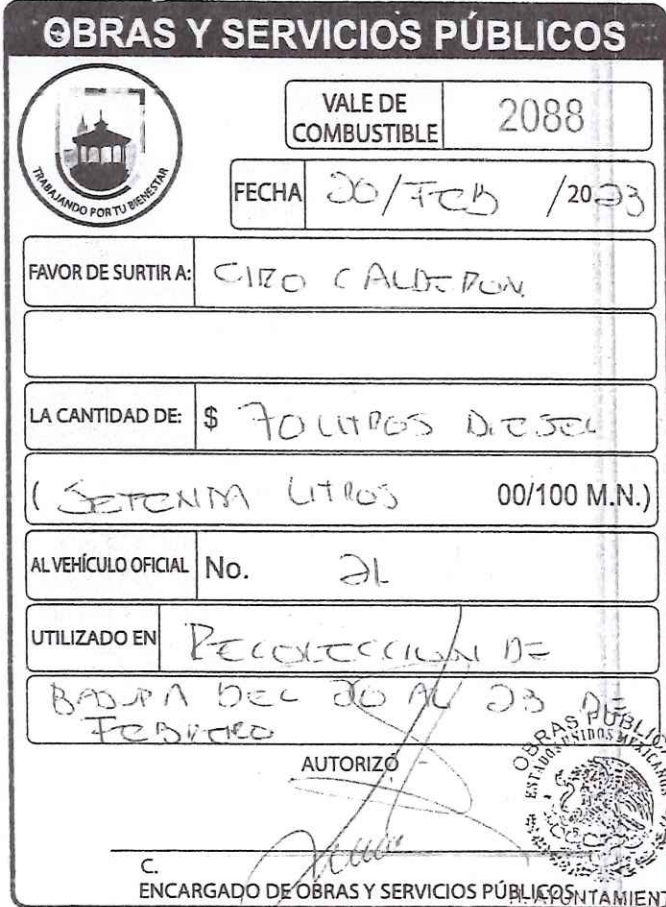 OBRAS Y SERVICIOS PÚBLICOS
TRABAJANDO POR TU BIENESTAR
VALE DE COMBUSTIBLE 2088
FECHA 20/FEB /2023
FAVOR DE SURTIR A: CIRO CALDERON
LA CANTIDAD DE: $ 70 LITROS DIESEL
(SETENTA LITROS 00/100 M.N.)
AL VEHÍCULO OFICIAL No.
UTILIZADO EN RECOLECCION DE
BASURA DEL 20 AL 23 DE
FEBRERO
AUTORIZÓ
OBRAS PÚBLICAS
ESTADOS UNIDOS MEXICANOS
C.
ENCARGADO DE OBRAS Y SERVICIOS PÚBLICOS
H. AYUNTAMIENT